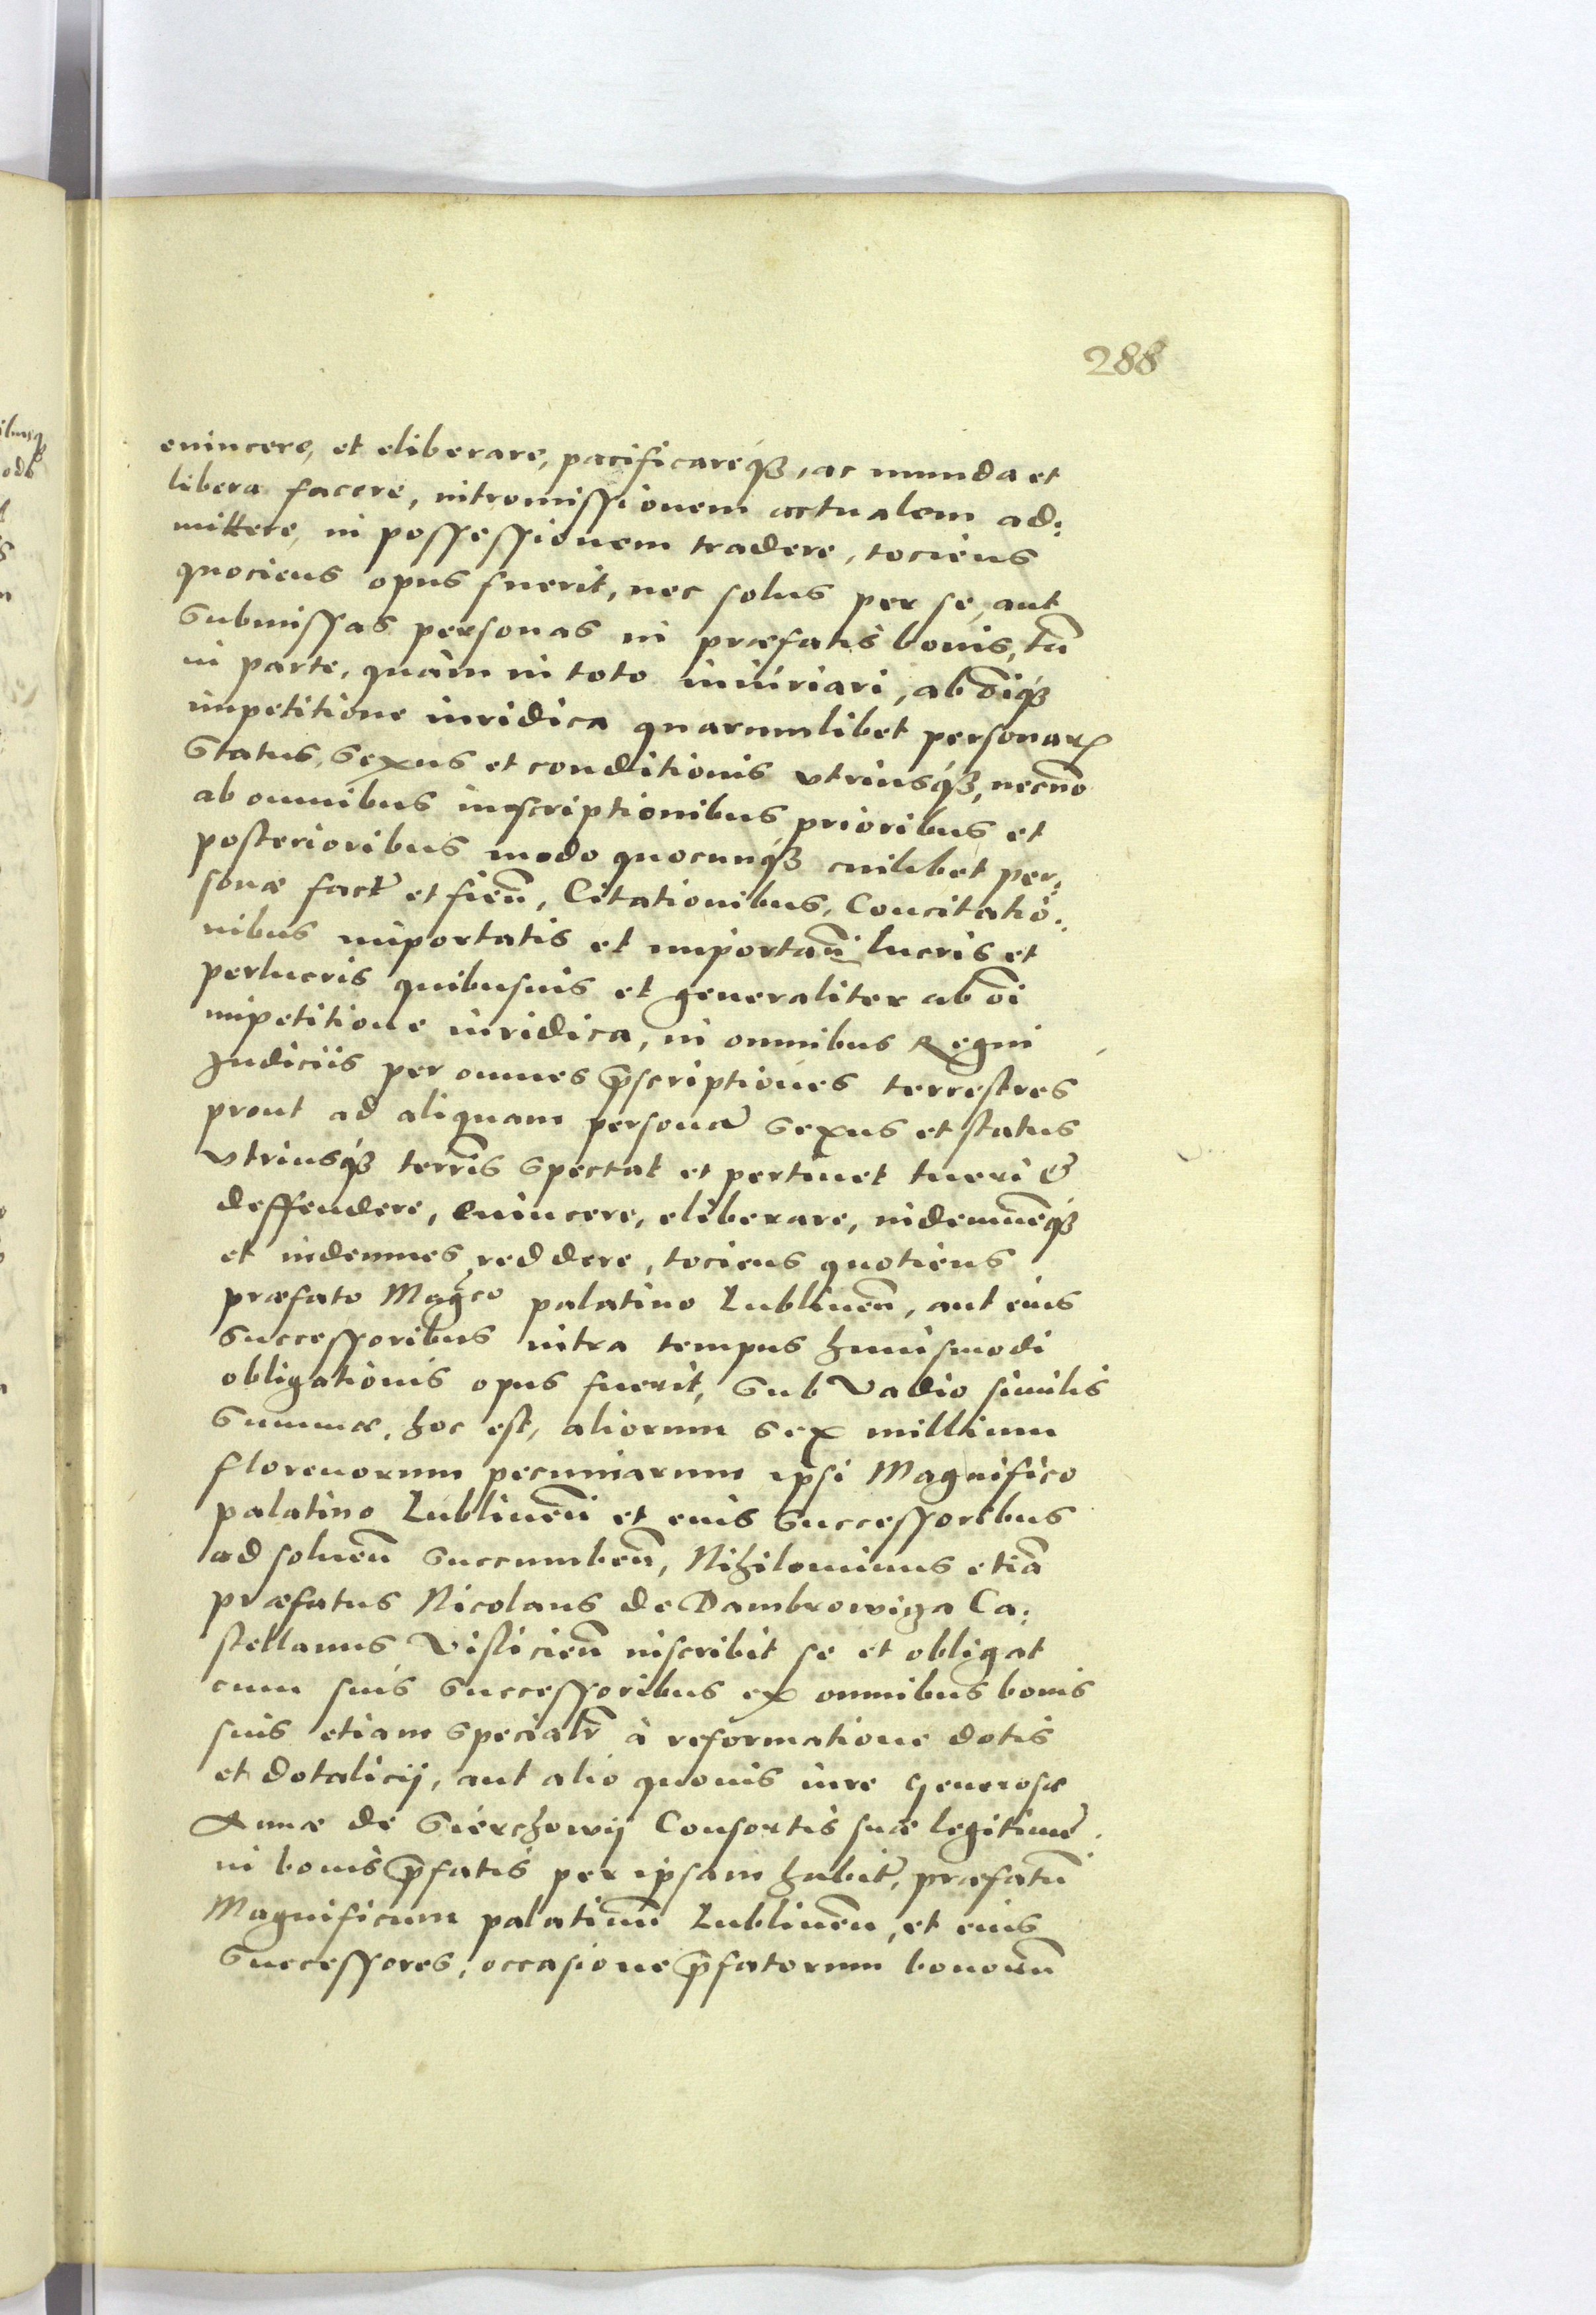 288
euincere, et eliberare, pacificareq́ꝫ, ac munda et
libera facere, intromissionem actualem ad:
mittere, in possessionem tradere, tociens
quociens opus fuerit, nec solus per se, aut
submissas personas in præfatis bonis, tā
in parte, quàm in toto iniuriari, ab oīq́ꝫ
impetitione iuridica quarumlibet personarꝝ
status, sexus et conditionis vtriusq́ꝫ, necnō
ab omnibus inscriptionibus prioribus et
posterioribus modo quocunq́ꝫ cuilibet per:
sonæ fact̃ et fień, Citationibus, Concitatio:
nibus importatis et importań lucris et
perlucris quibusuis et generaliter ab oī
impetitione iuridica, in omnibus Regni
Iudiciis per omnes p̄scriptiones terrestres
prout ad aliquam personā sexus et status
vtriusq́ꝫ terrīs spectat et pertinet tueri &
deffendere, euincere, eliberare, indemnēq́ꝫ
et indemnes reddere, tociens quotiens
præfato Magco palatino Lublineń, aut eius
successoribus intra tempus huiusmodi
obligationis opus fuerit, sub vadio similis
summæ, hoc est, aliorum sex millium
florenorum pecuniarum ipsi Magnifico
palatino Lublineń et eius successoribus
ad solueń succumbeń, Nihilominus etiā
præfatus Nicolaus de Dambrowiza Ca:
stellanus Visliciēn inscribit se et obligat
cum suis successoribus ex omnibus bonis
suis etiam specialr̃ à reformatione dotis
et dotalicij, aut alio quouis iure Generosæ
Annæ de Sierchowij Consortis suæ legitimę
in bonis p̄fatis per ipsam habit̃, præfatū
Magnificum palatinū Lublinēn, et eius
successores, occasione p̄fatorum bonorū